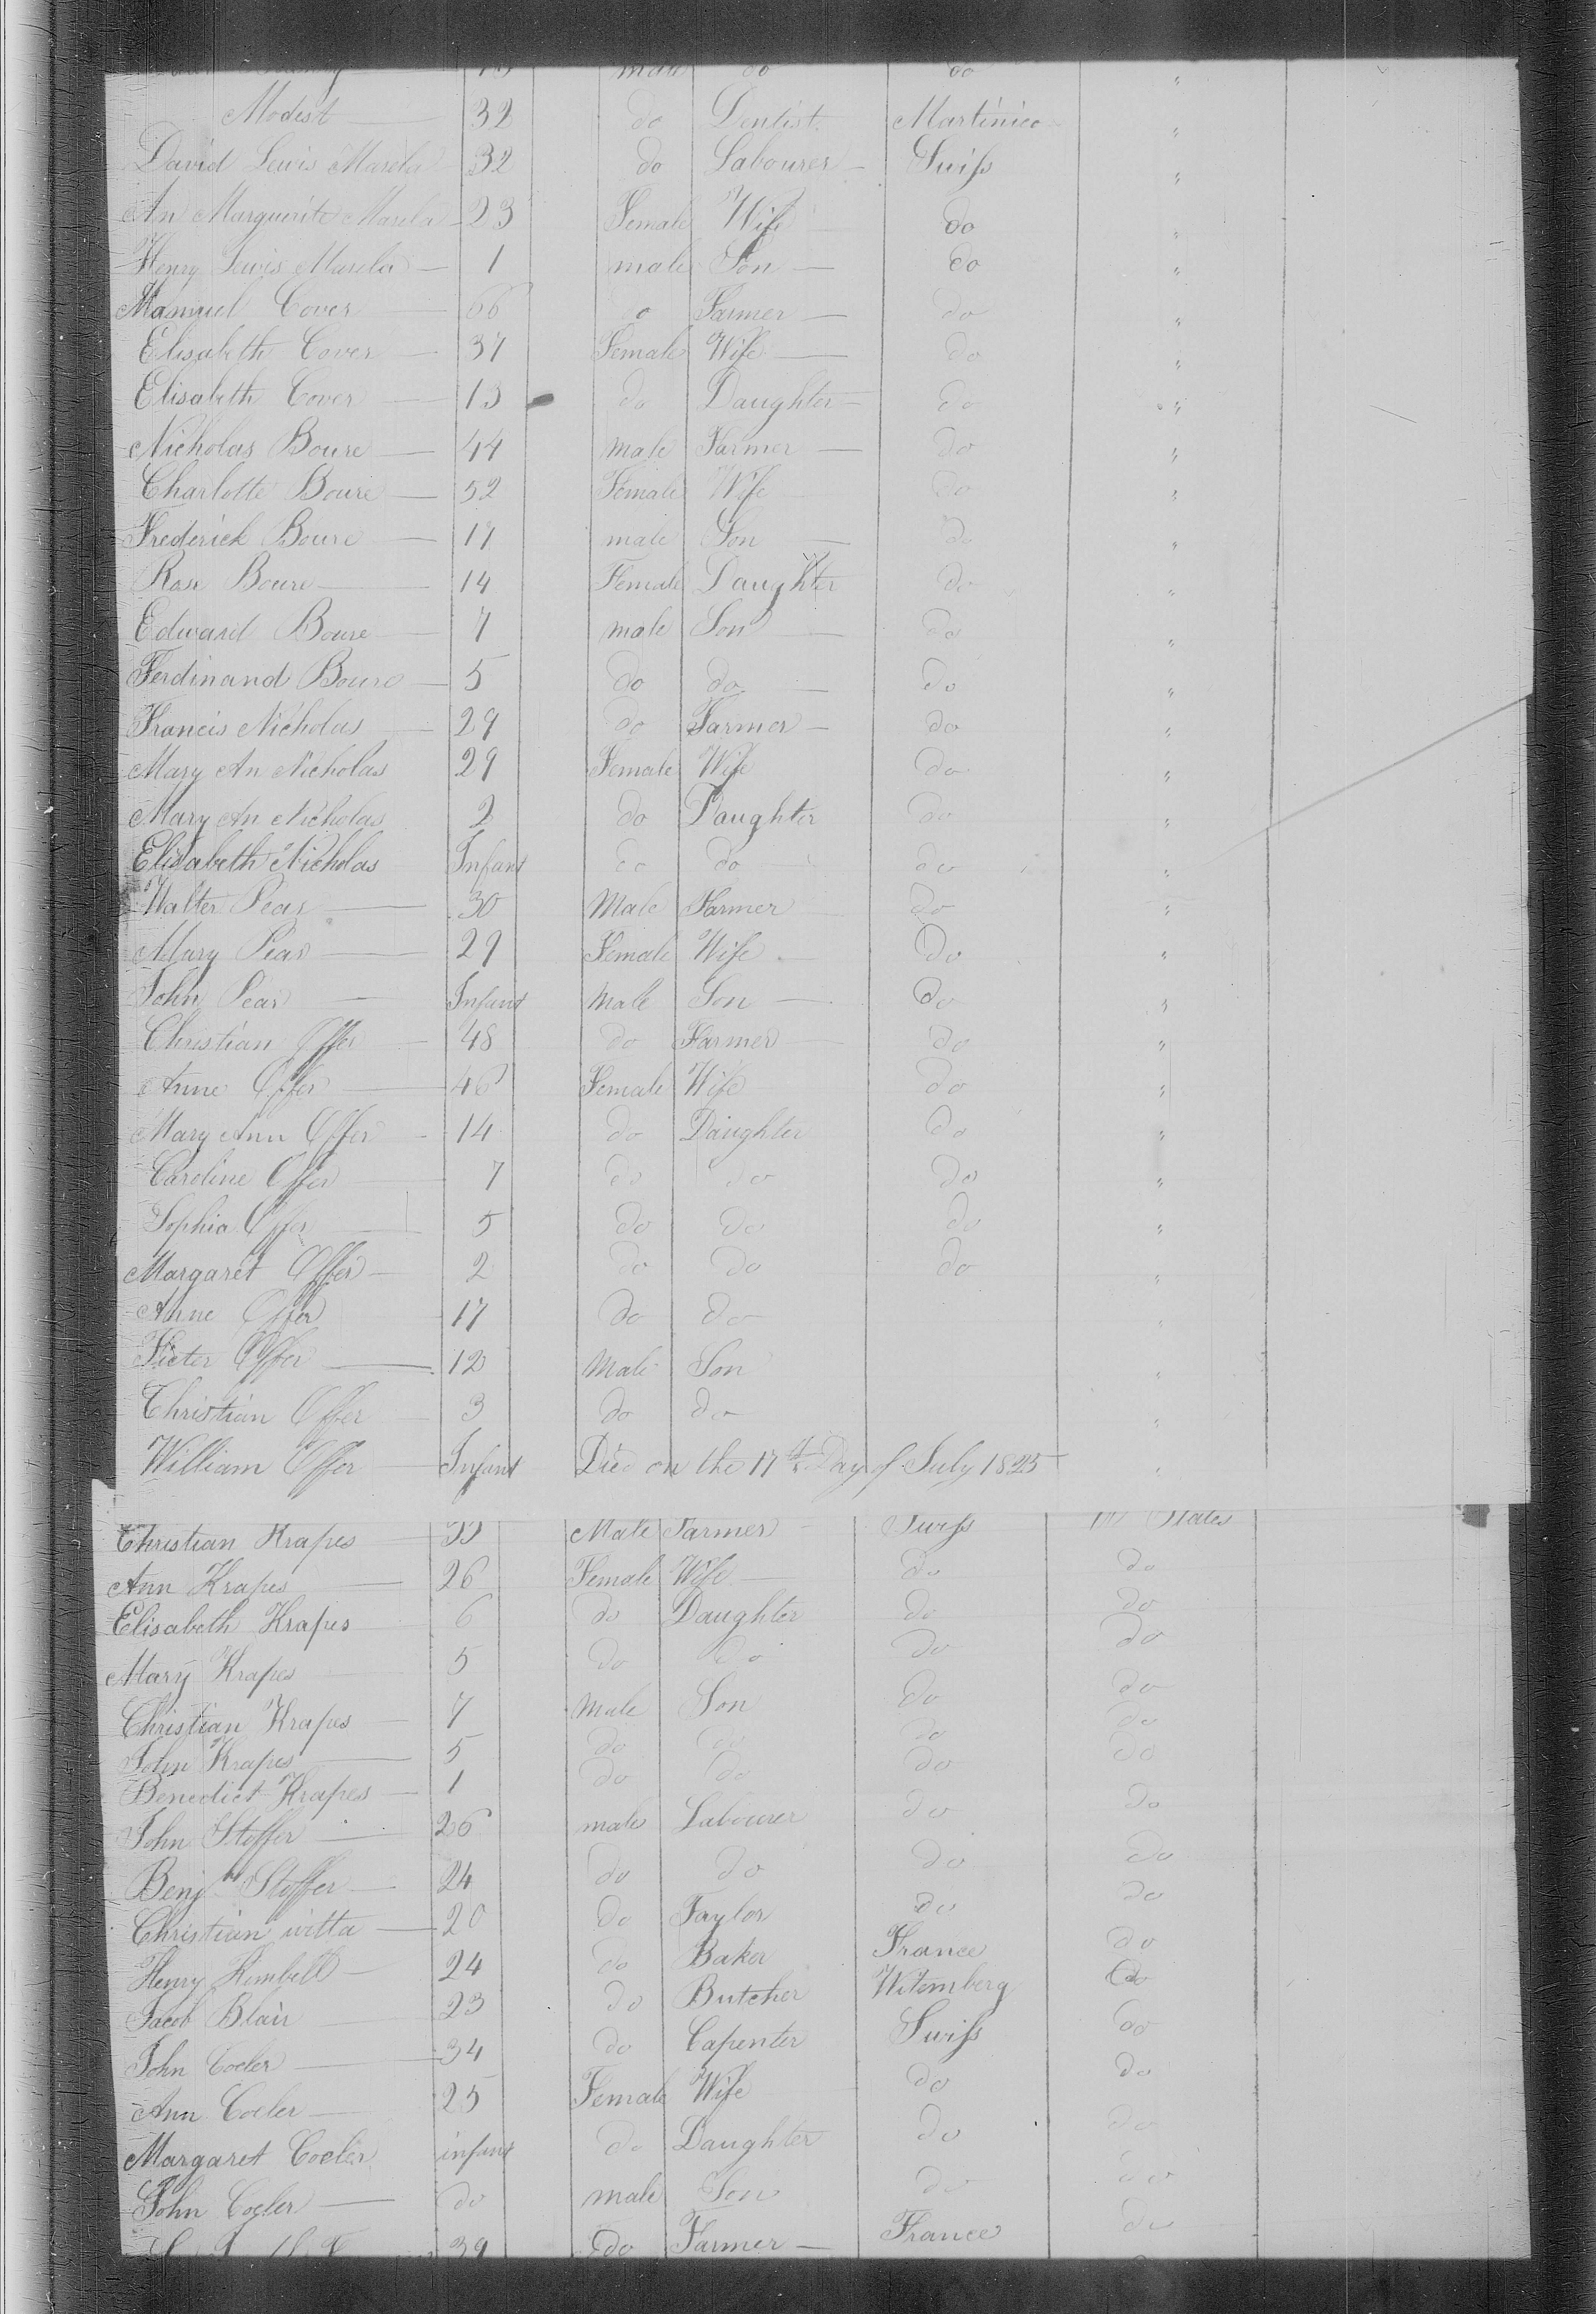 male do do "
Modest 32 do Dentist Martinico "
David Lewis Marela 32 do Labourer Swiss "
An Marguerite Marela 23 Female Wife do "
Henry Lewis Marela 1 male Son do "
Manuel Cover 66 do Farmer do "
Elisabeth Cover 37 Female Wife do "
Elisabeth Cover 13 do Daughter do "
Nicholas Boure 44 male Farmer do "
Charlotte Boure 52 Female Wife do "
Frederick Boure 17 male Son do "
Rose Boure 14 Female Daughter do "
Edward Boure 7 male Son do "
Ferdinand Boure 5 do do do "
Francis Nicholas 29 do Farmer do "
Mary An Nicholas 29 Female Wife do "
Mary An Nicholas 2 do Daughter do "
Elisabeth Nicholas Infant do do do "
Walter Pear 30 Male Farmer do "
Mary Pear 29 Female Wife Do "
John Pear Infant Male Son Do "
Christian Offer 48 do Farmer do "
Anne Offer 46 Female Wife do "
Mary Ann Offer 14 do Daughter Do "
Caroline Offer 7 do do do "
Sophia Offer 5 do do do "
Margaret Offer 2 do do do "
Anne Offer 17 do do "
Offer 12 Male Son "
Christian Offer 3 do do "
William Offer Infant Died on the 17th Day of July 1825 "
Christian Krapes 33 Male Farmer Swiss States
Ann Krapes 26 Female Wife do do
Elisabeth Krapes 6 do Daughter do do
Mary Krapes 5 do do do do
Christian Krapes 7 male Son do do
John Krapes 5 do do do do
Benedict Krapes 1 do do do do
John Stoffer 26 male Labourer do do
Benjn Stoffer 24 do do do do
Christian witta 20 do Taylor do do
Henry Kimbell 24 do Baker France do
Jacob Blair 23 do Butcher Witemberg do
John Coeler 34 do Capenter Swiss do
Ann Coeler 25 Female Wife do do
Margaret Coeler infant do Daughter do do
John Coeler do male Son do do
39 do Farmer France do